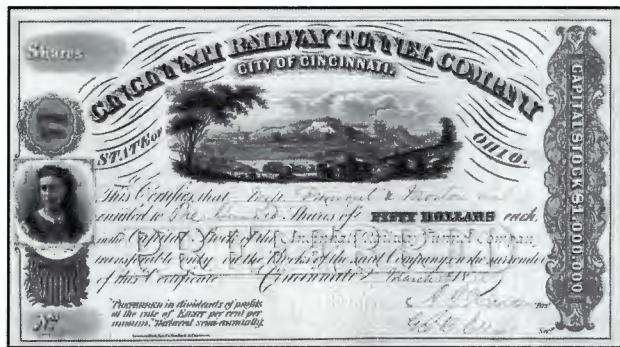 Shares
CINCINNATI RAILWAY TUNNEL COMPANY
CITY OF CINCINNATI.
STATE OF OHIO.
CAPITAL STOCK $1,000,000
This Certifies that
entitled to One Hundred Shares of FIFTY DOLLARS each,
in the Capital Stock of the Cincinnati Railway Tunnel Company
transferable only on the Books of the said Company on the surrender
of this Certificate Cincinnati March 18
PREFERRED in dividends of profits
at the rate of EIGHT per cent per
annum. Declared semi-annually.
No.
Pres't
Sec'y